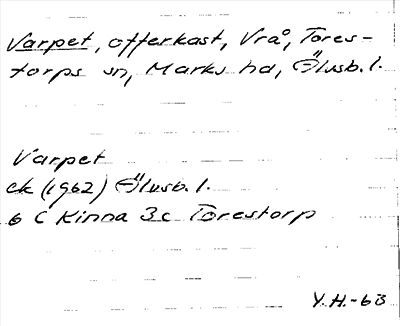 Varpet, offerkast, Vrå, Tores-
torps sn, Marks hd, Älvsb. l.
Varpet
ek (1962) Älvsb. l.
6 C Kinna 3c Torestorp
Y.H.-63